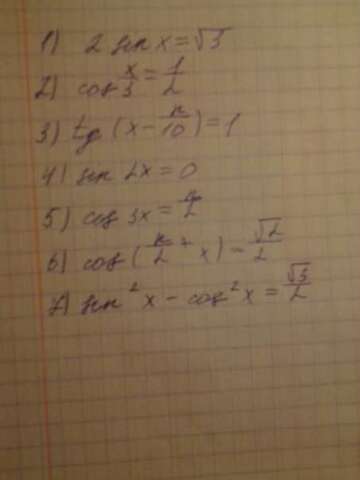 1) 2 sin x = √3
2) cos x/3 = 1/2
3) tg (x - π/10) = 1
4) sin 2x = 0
5) cos 3x = π/2
6) cos (π/2 + x) = √2/2
7) sin² x - cos² x = √3/2